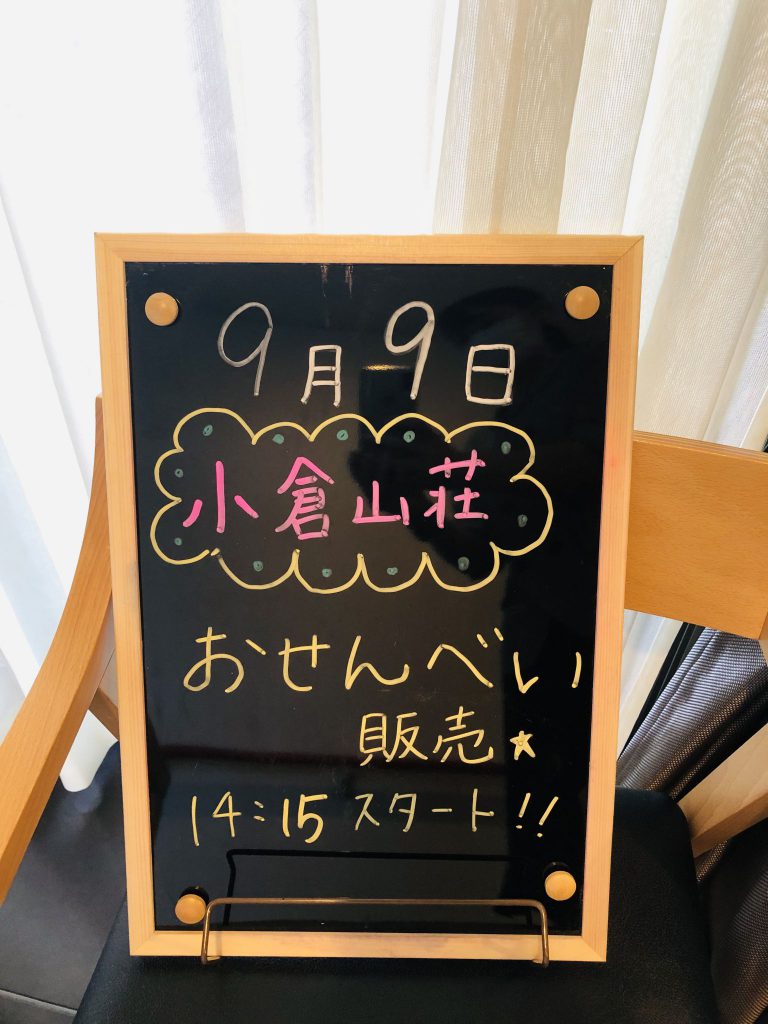 9月9日
小倉山荘
おせんべい
販売★
14:15 スタート!!